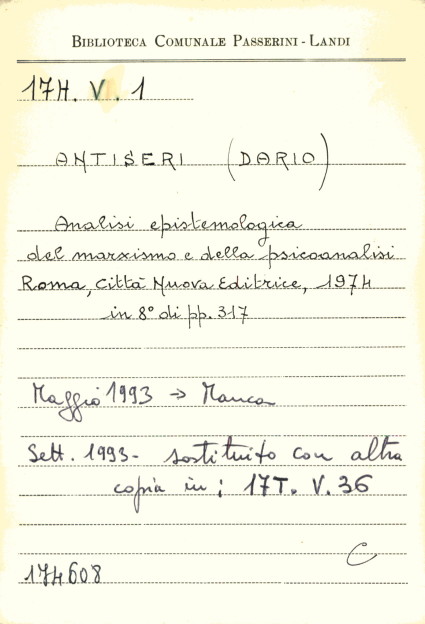 BIBLIOTECA COMUNALE PASSERINI - LANDI
17H. V. 1
ANTISERI (DARIO)
Analisi epistemologica
del marxismo e della psicoanalisi
Roma, Città Nuova Editrice, 1974
in 8° di pp. 317
Maggio 1993 → Manca
Sett. 1993 - sostituito con altra
copia in: 17T. V. 36
C
174608